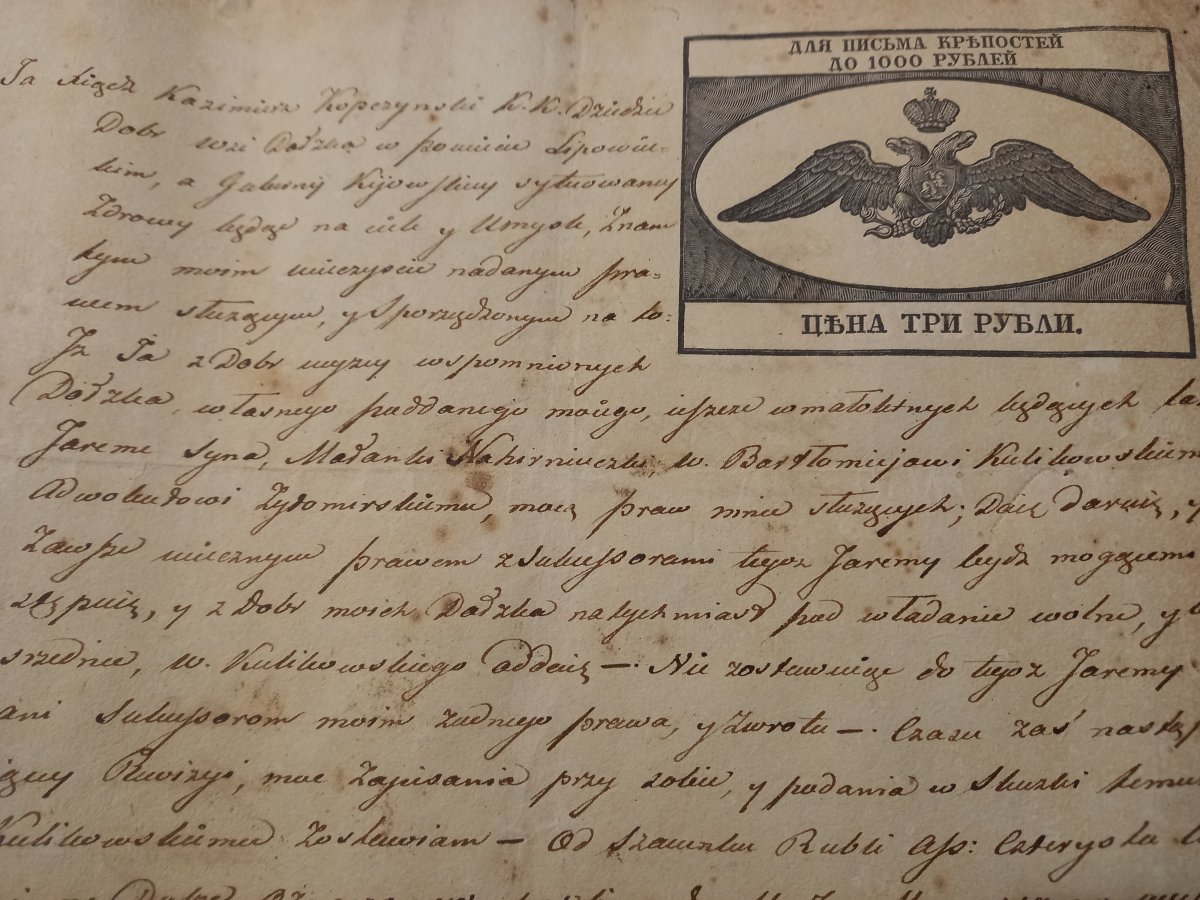 ДЛЯ ПИСЬМА КРѢПОСТЕЙ
ДО 1000 РУБЛЕЙ
ЦѢНА ТРИ РУБЛИ.
Ja Xiądz Kazimierz Kopczynski K. K. Dziedzic
Dobr wsi Dołzka w powiecie Lipowiec-
kim, a Gubernij Kijowskiey sytuowaney
Zdrowy będąc na ciele y Umysle, Znam
tym moim wieczyscie nadanym pra-
wem służącym, y Sporządzonym na to:
Jż Ja z Dobr wyzey wspomnionych
Dołzka własnego poddanego moiego, ieszcze w małoletnych będących
Jareme Syna, Małanki Nahirniaczki W. Bartłomiejowi Kulikowskiemu
Adwokatowi Zytomirskiemu, mocą praw mnie służących; Daię daruię,
Zawsze wiecznym prawem z Sukessorami tegoz Jaremy bydz mogącemi
zstępuię, y z dobr moich Dołzka natychmiast pod władanie wolne, y
srzednie, W. Kulikowskiego oddaię — Nie zostawuiąc do tegoz Jaremy
ani Sukessorom moim żadnego prawa, y Zwrotu — Czasu zaś nastę
iącey Rewizyi, moc Zapisania przy sobie, y podania w Skazki temu
Kulikowskiemu Zostawiam — Od Szacunku Rubli Ass: Czterysta